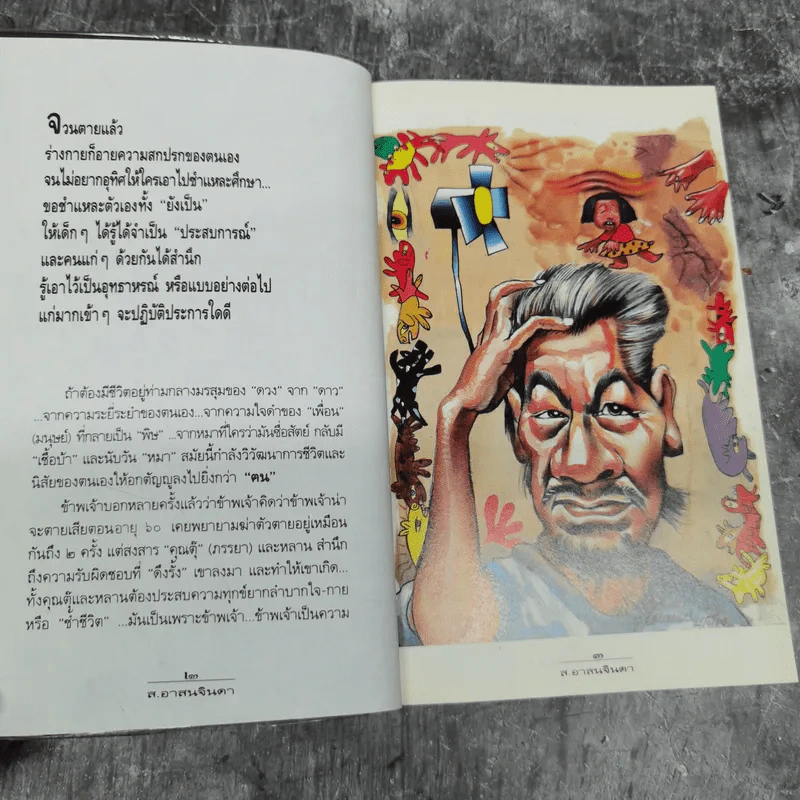 จวนตายแล้ว
ร่างกายก็อายความสกปรกของตนเอง
จนไม่อยากอุทิศให้ใครเอาไปชำแหละศึกษา...
ขอชำแหละตัวเองทั้ง “ยังเป็น”
ให้เด็กๆ ได้รู้ได้จำเป็น “ประสบการณ์”
และคนแก่ๆ ด้วยกันได้สำนึก
รู้เอาไว้เป็นอุทธาหรณ์ หรือแบบอย่างต่อไป
แก่มากเข้าๆ จะปฏิบัติประการใดดี
ถ้าต้องมีชีวิตอยู่ท่ามกลางมรสุมของ “ดวง” จาก “ดาว”
...จากความระยี่ระยำของตนเอง...จากความใจดำของ “เพื่อน”
(มนุษย์) ที่กลายเป็น “พิษ” ...จากหมาที่ใครว่ามันซื่อสัตย์ กลับมี
“เชื้อบ้า” และนับวัน “หมา” สมัยนี้กำลังวิวัฒนาการชีวิตและ
นิสัยของตนเองให้อกตัญญูลงไปยิ่งกว่า “ฅน”
ข้าพเจ้าบอกหลายครั้งแล้วว่าข้าพเจ้าคิดว่าข้าพเจ้าน่า
จะตายเสียตอนอายุ ๖๐ เคยพยายามฆ่าตัวตายอยู่เหมือน
กันถึง ๒ ครั้ง แต่สงสาร “คุณตุ๊” (ภรรยา) และหลาน สำนึก
ถึงความรับผิดชอบที่ “ดึงรั้ง” เขาลงมา และทำให้เขาเกิด...
ทั้งคุณตุ๊และหลานต้องประสบความทุกข์ยากลำบากใจ-กาย
หรือ “ช้ำชีวิต” ...มันเป็นเพราะข้าพเจ้า...ข้าพเจ้าเป็นความ
ส.อาสนจินดา
๓
ส.อาสนจินดา